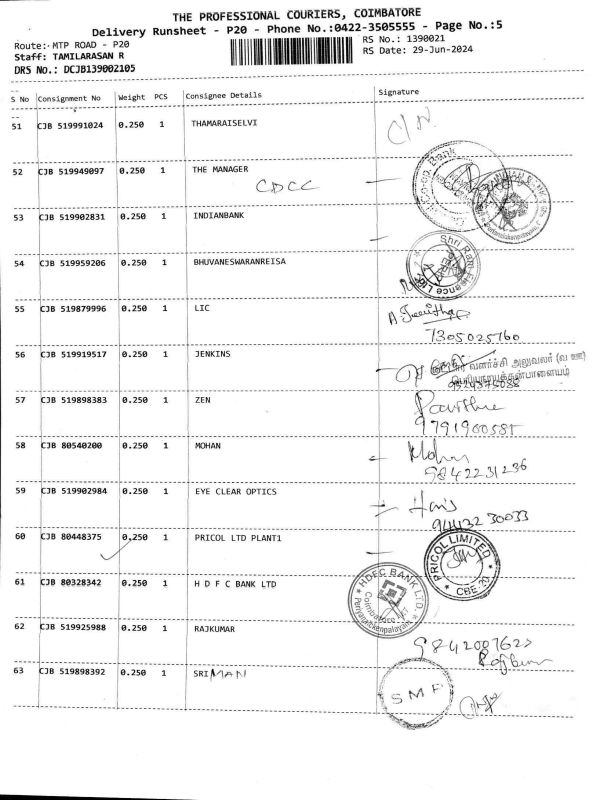 THE PROFESSIONAL COURIERS, COIMBATORE
Delivery Runsheet - P20 - Phone No.:0422-3505555 - Page No.:5
Route: MTP ROAD - P20
RS No.: 1390021
Staff: TAMILARASAN R
RS Date: 29-Jun-2024
DRS No.: DCJB139002105
S No Consignment No Weight PCS Consignee Details Signature
51 CJB 519991024 0.250 1 THAMARAISELVI
52 CJB 519949097 0.250 1 THE MANAGER
CDCC
53 CJB 519902831 0.250 1 INDIANBANK
54 CJB 519959206 0.250 1 BHUVANESWARANREISA
Shri Ram
55 CJB 519879996 0.250 1 LIC
7305025760
56 CJB 519919517 0.250 1 JENKINS
வளர்ச்சி அலுவலர் (வ ஊ)
பெரியநாயக்கன்பாளையம்
57 CJB 519898383 0.250 1 ZEN
58 CJB 80540200 0.250 1 MOHAN
Mohan
9842231236
59 CJB 519902984 0.250 1 EYE CLEAR OPTICS
Haris
94432 30033
60 CJB 80448375 0.250 1 PRICOL LTD PLANT1
PRICOL LIMITED
CBE 20
61 CJB 80328342 0.250 1 H D F C BANK LTD
HDFC BANK LTD.
Coimbatore
Periyanaickenpalayam
62 CJB 519925988 0.250 1 RAJKUMAR
63 CJB 519898392 0.250 1 SRIMAN
SMF